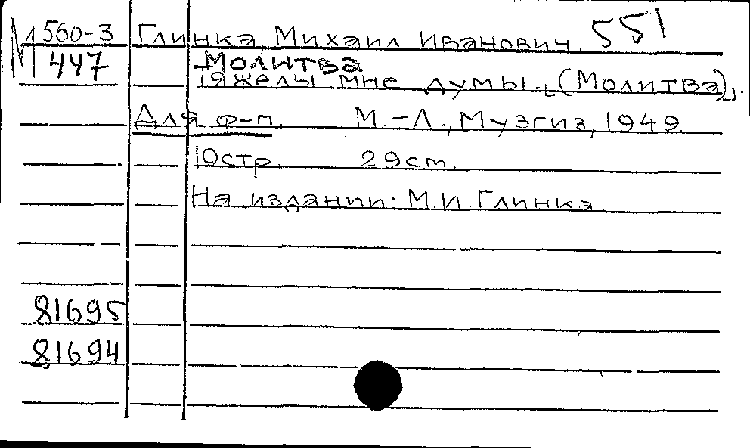 М 560-3 Глинка, Михаил Иванович. 551
447 Молитва
Тяжелы мне думы. (Молитва).
Для ф-п. М.-Л., Музгиз, 1949
10стр. 29см.
На издании: М.И. Глинка
81695
81694